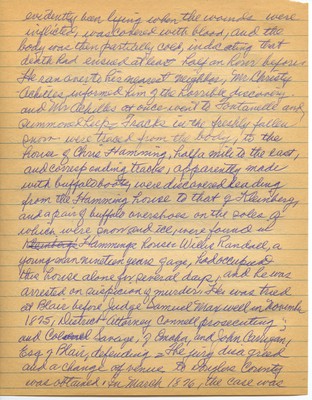 evidently been lying when the wounds were
inflicted, was covered with blood, and the
body was then partially cold, indicating that
death had ensued at least half an hour before.
He ran over to his nearest neighbor, Mr. Christy
Achilles, informed him of the horrible discovery
and Mr Achilles at once went to Fontanelle and
summoned help. Tracks in the freshly fallen
snow were traced from the body, to the
house of Chris Hamming, half a mile to the east,
and corresponding tracks, apparently made
with buffalo boots, were discovered leading
from the Hamming house to that of
and a pair of buffalo overshoes on the soles of
which were snow and ice, were found in
Hammings house. Willis Randall, a
young man nineteen years of age, had occupied
this house alone for several days, and he was
arrested on suspicion of murder. He was tried
at Blair before Judge Samuel Maxwell in November
1875, District Attorney Connell prosecuting,
and Colonel Savage, of Omaha, and John Carrigan,
Esq of Blair, defending. The jury disagreed
and a change of venue to County
was obtained. In March 1876, the case was